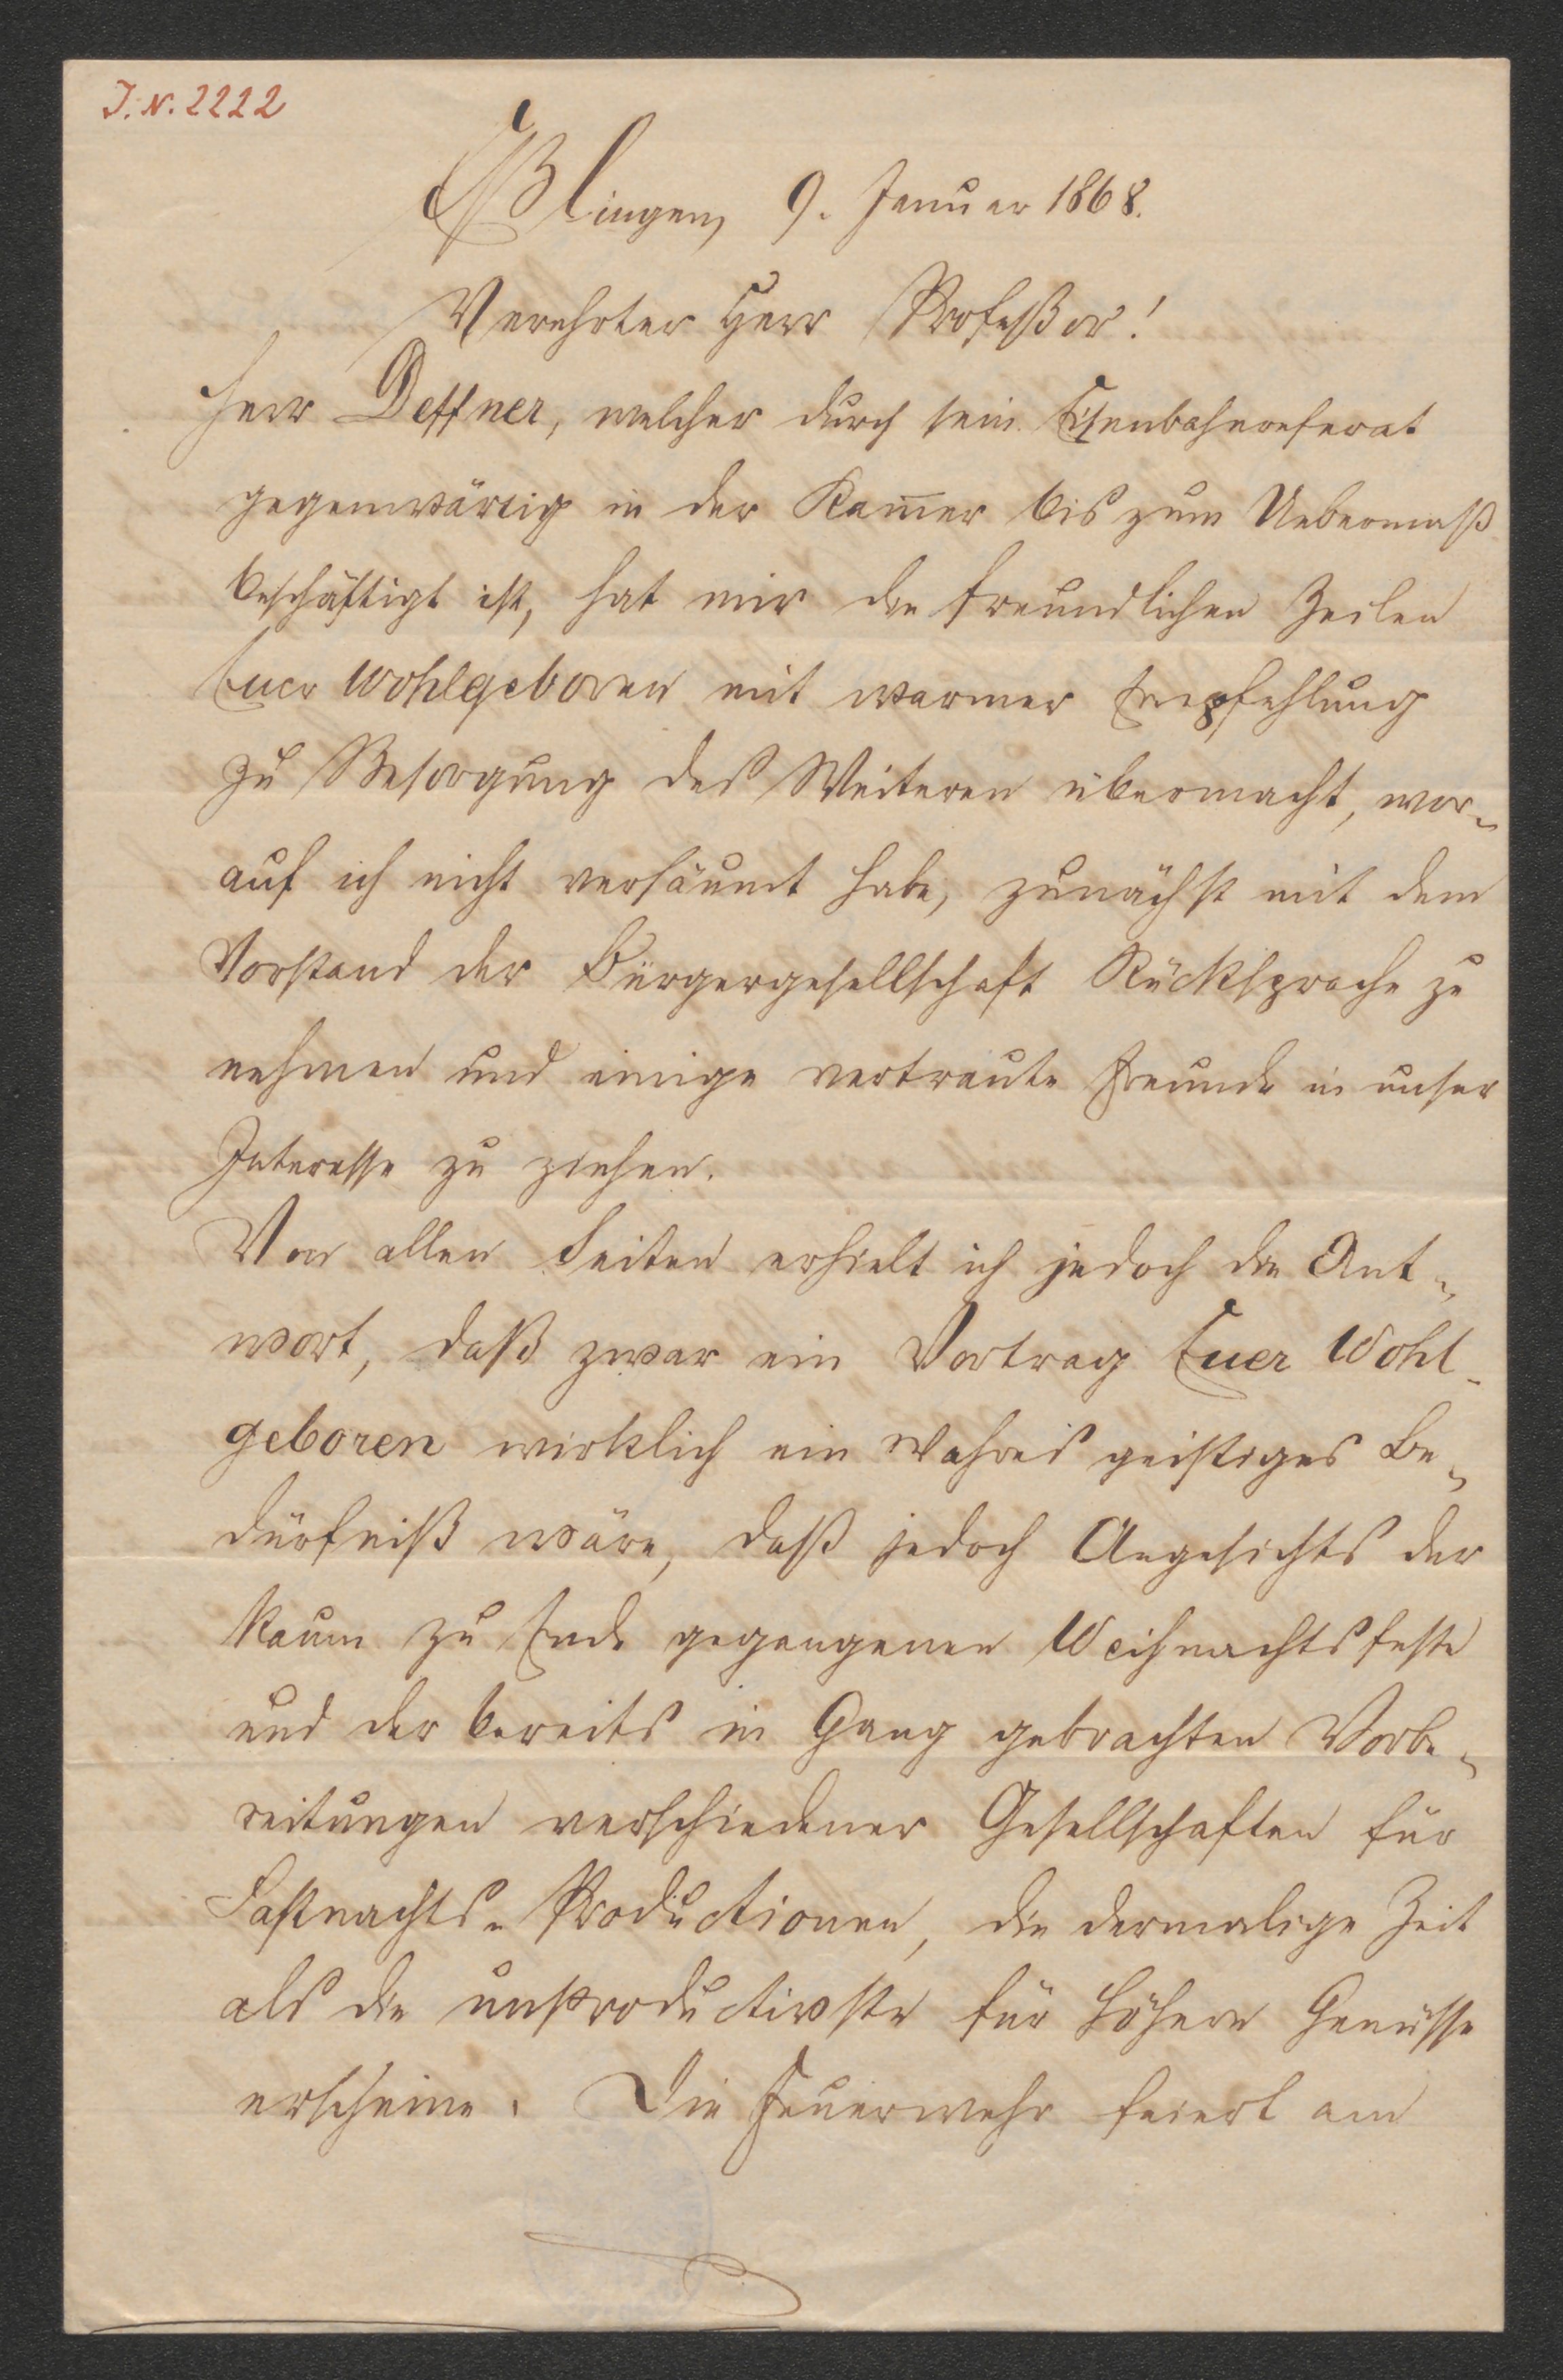 J. N. 2222
Eßlingen, 9. Januar 1868.
Verehrter Herr Profeßor!
Herr Deffner, welcher durch sein Eisenbahnreferat
gegenwärtig in der Kam̄er bis zum Uebermaß
beschäftigt ist, hat mir die freundlichen Zeilen
Euer Wohlgeboren mit warmer Empfehlung
zu Besorgung des Weiteren übermacht, wor-
auf ich nicht versäumt habe, zunächst mit dem
Vorstand der Bürgergesellschaft Rücksprache zu
nehmen und einige vertraute Freunde in unser
Interesse zu ziehen.
Von allen Seiten erhielt ich jedoch die Ant-
wort, daß zwar ein Vortrag Euer Wohl-
geboren wirklich ein wahres geistiges Be-
dürfniß wäre, daß jedoch Angesichts der
kaum zu Ende gegangenen Weihnachtsfeste
und der bereits in Gang gebrachten Vorbe-
reitungen verschiedener Gesellschaften für
Fastnachts-Productionen, die dermalige Zeit
als die unproductivste für höhere Genüsse
erscheine. Die Feuerwehr feiert am